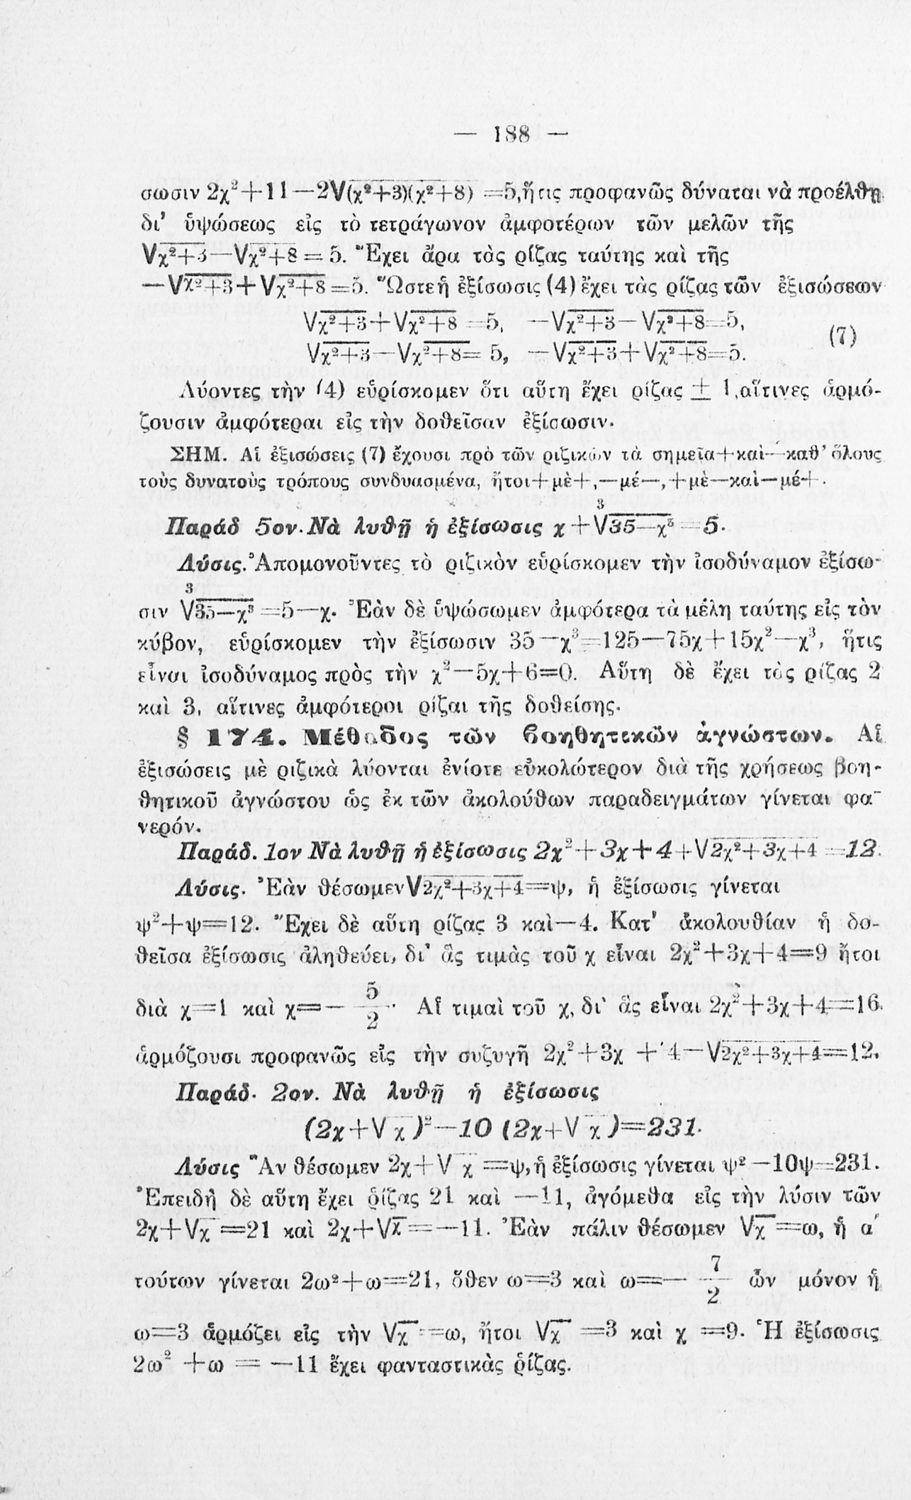 — 188 —
σωσιν 2χ²+11—2√(χ²+3)(χ²+8) =5, ἥτις προφανῶς δύναται νὰ προέλθῃ
δι' ὑψώσεως εἰς τὸ τετράγωνον ἀμφοτέρων τῶν μελῶν τῆς
√χ²+3—√χ²+8 = 5. Ἔχει ἄρα τὰς ρίζας ταύτης καὶ τῆς
—√χ²+3+√χ²+8=5. Ὥστε ἡ ἐξίσωσις (4) ἔχει τὰς ρίζας τῶν ἐξισώσεων
√χ²+3+√χ²+8=5, —√χ²+3—√χ²+8=5,
√χ²+3—√χ²+8= 5, —√χ²+3+√χ²+8=5. (7)
Λύοντες τὴν (4) εὑρίσκομεν ὅτι αὕτη ἔχει ρίζας ± 1, αἵτινες ἁρμό-
ζουσιν ἀμφότεραι εἰς τὴν δοθεῖσαν ἐξίσωσιν.
ΣΗΜ. Αἱ ἐξισώσεις (7) ἔχουσι πρὸ τῶν ριζικῶν τὰ σημεῖα+καὶ—καθ' ὅλους
τοὺς δυνατοὺς τρόπους συνδυασμένα, ἤτοι+μὲ+,—μέ—,+μὲ—καὶ—μέ+.
Παράδ 5ον. Νὰ λυθῇ ἡ ἐξίσωσις χ+∛35—χ³=5.
Λύσις. Ἀπομονοῦντες τὸ ριζικὸν εὑρίσκομεν τὴν ἰσοδύναμον ἐξίσω-
σιν ∛35—χ³=5—χ. Ἐὰν δὲ ὑψώσωμεν ἀμφότερα τὰ μέλη ταύτης εἰς τὸν
κύβον, εὑρίσκομεν τὴν ἐξίσωσιν 35—χ³=125—75χ+15χ²—χ³, ἥτις
εἶναι ἰσοδύναμος πρὸς τὴν χ²—5χ+6=0. Αὕτη δὲ ἔχει τὰς ρίζας 2
καὶ 3, αἵτινες ἀμφότεροι ρίζαι τῆς δοθείσης.
§ 174. Μέθοδος τῶν βοηθητικῶν ἀγνώστων. Αἱ
ἐξισώσεις μὲ ριζικὰ λύονται ἐνίοτε εὐκολώτερον διὰ τῆς χρήσεως βοη-
θητικοῦ ἀγνώστου ὡς ἐκ τῶν ἀκολούθων παραδειγμάτων γίνεται φα-
νερόν.
Παράδ. 1ον Νὰ λυθῇ ἡ ἐξίσωσις 2χ²+3χ+4+√2χ²+3χ+4=12.
Λύσις. Ἐὰν θέσωμεν√2χ²+3χ+4=ψ, ἡ ἐξίσωσις γίνεται
ψ²+ψ=12. Ἔχει δὲ αὕτη ρίζας 3 καὶ—4. Κατ' ἀκολουθίαν ἡ δο-
θεῖσα ἐξίσωσις ἀληθεύει, δι' ἃς τιμὰς τοῦ χ εἶναι 2χ²+3χ+4=9 ἤτοι
διὰ χ=1 καὶ χ=—5/2. Αἱ τιμαὶ τοῦ χ, δι' ἃς εἶναι 2χ²+3χ+4=16.
ἁρμόζουσι προφανῶς εἰς τὴν συζυγῆ 2χ²+3χ +4—√2χ²+3χ+4=12.
Παράδ. 2ον. Νὰ λυθῇ ἡ ἐξίσωσις
(2χ+√χ)²—10 (2χ+√χ)=231.
Λύσις Ἂν θέσωμεν 2χ+√χ =ψ, ἡ ἐξίσωσις γίνεται ψ²—10ψ=231.
Ἐπειδὴ δὲ αὕτη ἔχει ῥίζας 21 καὶ —11, ἀγόμεθα εἰς τὴν λύσιν τῶν
2χ+√χ =21 καὶ 2χ+√χ=—11. Ἐὰν πάλιν θέσωμεν √χ=ω, ἡ α'
τούτων γίνεται 2ω²+ω=21, ὅθεν ω=3 καὶ ω=—7/2 ὧν μόνον ἡ
ω=3 ἁρμόζει εἰς τὴν √χ=ω, ἤτοι √χ =3 καὶ χ =9. Ἡ ἐξίσωσις
2ω² +ω = —11 ἔχει φανταστικὰς ῥίζας.